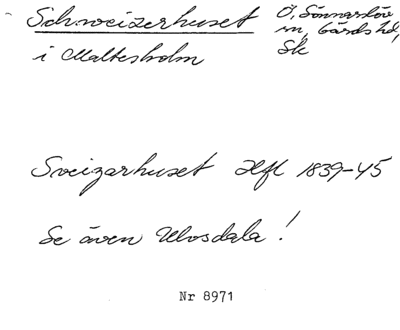 Schweizerhuset
i Maltesholm
Ö, Sönnarslöv
sn, Gärds hd,
Sk
Sveizarhuset Hfl 1839-45
Se även Ulvsdala!
Nr 8971